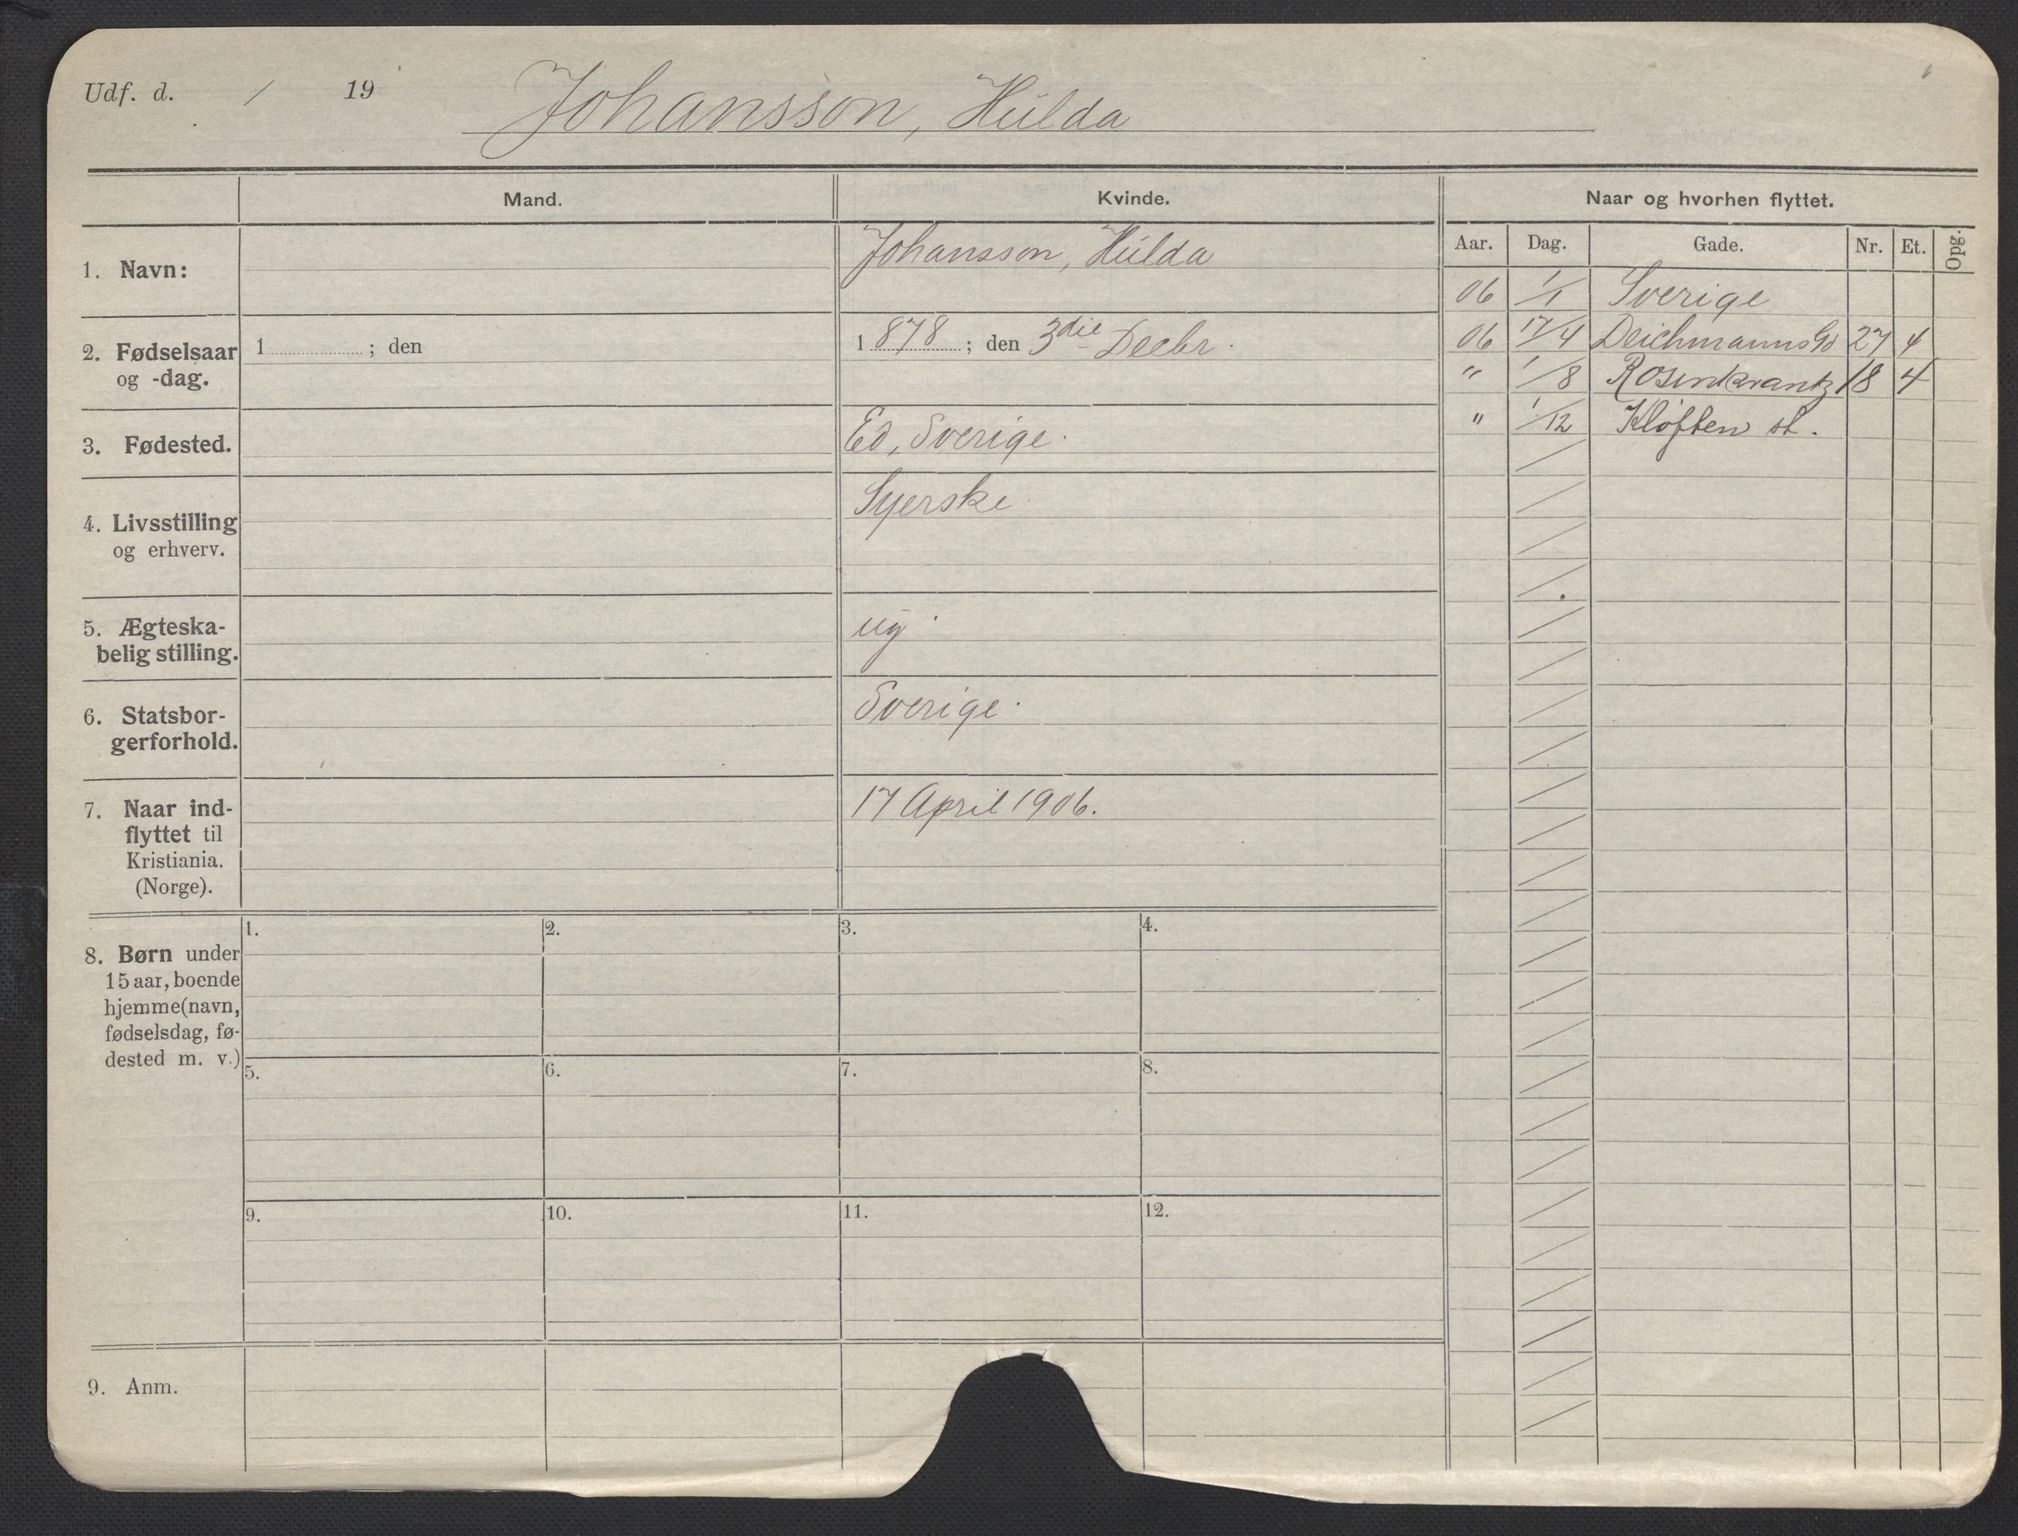 Udf. d. / 19
Johansson, Hulda
Mand.
Kvinde.
Naar og hvorhen flyttet.
Aar. Dag. Gade. Nr. Et. Opg.
1. Navn:
Johansson, Hulda
2. Fødselsaar
og -dag.
1 ; den
1 878 ; den 3die Decbr.
3. Fødested.
Ed, Sverige.
4. Livsstilling
og erhverv.
Syerske
5. Ægteska-
belig stilling.
ug.
6. Statsbor-
gerforhold.
Sverige.
7. Naar ind-
flyttet til
Kristiania.
(Norge).
17 April 1906.
06 1/1 Sverige
06 17/4 Deichmanns Gd 27 4
" 1/8 Rosenkrantz 18 4
" 1/12 Kløften st.
8. Børn under
15 aar, boende
hjemme (navn,
fødselsdag, fø-
dested m. v.)
1. 2. 3. 4.
5. 6. 7. 8.
9. 10. 11. 12.
9. Anm.